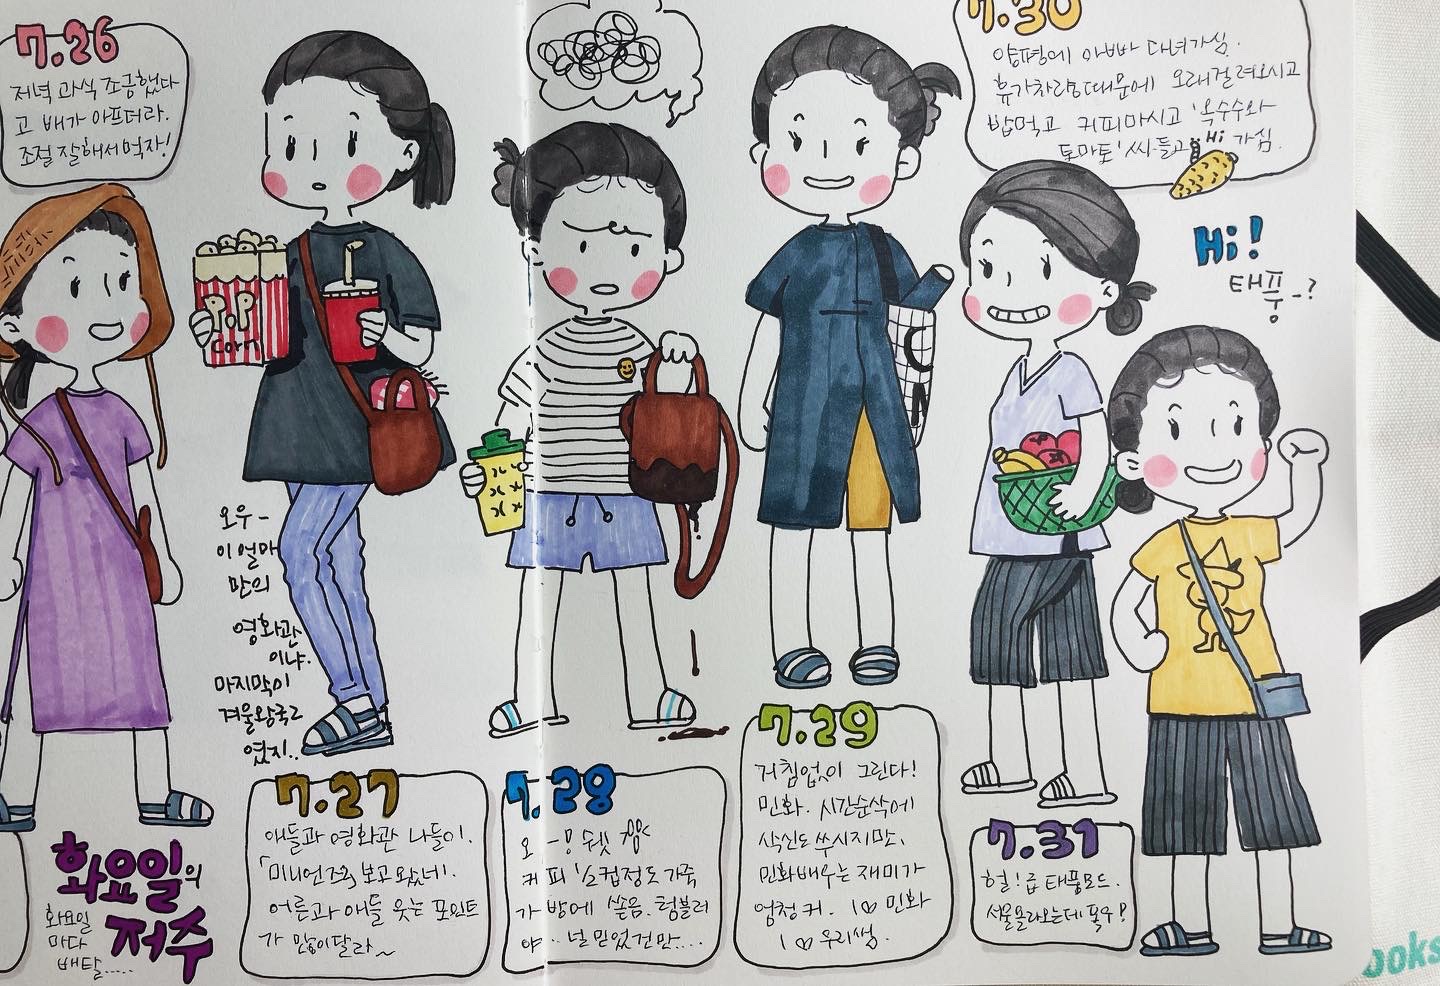 7.26
저녁 과식 조금했다
고 배가 아프더라.
조절 잘해서먹자!
POP
Corn
오우-
이얼마
만의
영화관
이냐.
마지막이
겨울왕국2
였지..
화요일의
저주
화요일
마다
배탈.....
7.27
애들과 영화관 나들이.
「미니언즈2」 보고왔네.
어른과 애들 웃는 포인트
가 많이달라~
7.28
오-마 쉣
커피 '소컵정도 가죽
가방에 쏟음. 텀블러
야.. 널 믿었건만...
7.29
거침없이 그린다!
민화. 시간순삭에
삭신도 쑤시지만,
민화배우는 재미가
엄청 커. I ♡ 민화
I ♡ 우리쌤.
7.30
양평에 아빠 다녀가심.
휴가차량때문에 오래걸려오시고
밥먹고 커피마시고 '옥수수와
토마토' 씨-들고 가심.
Hi
Hi!
태풍-?
7.31
헐! 급 태풍모드.
서울올라오는데 폭우!
ooks